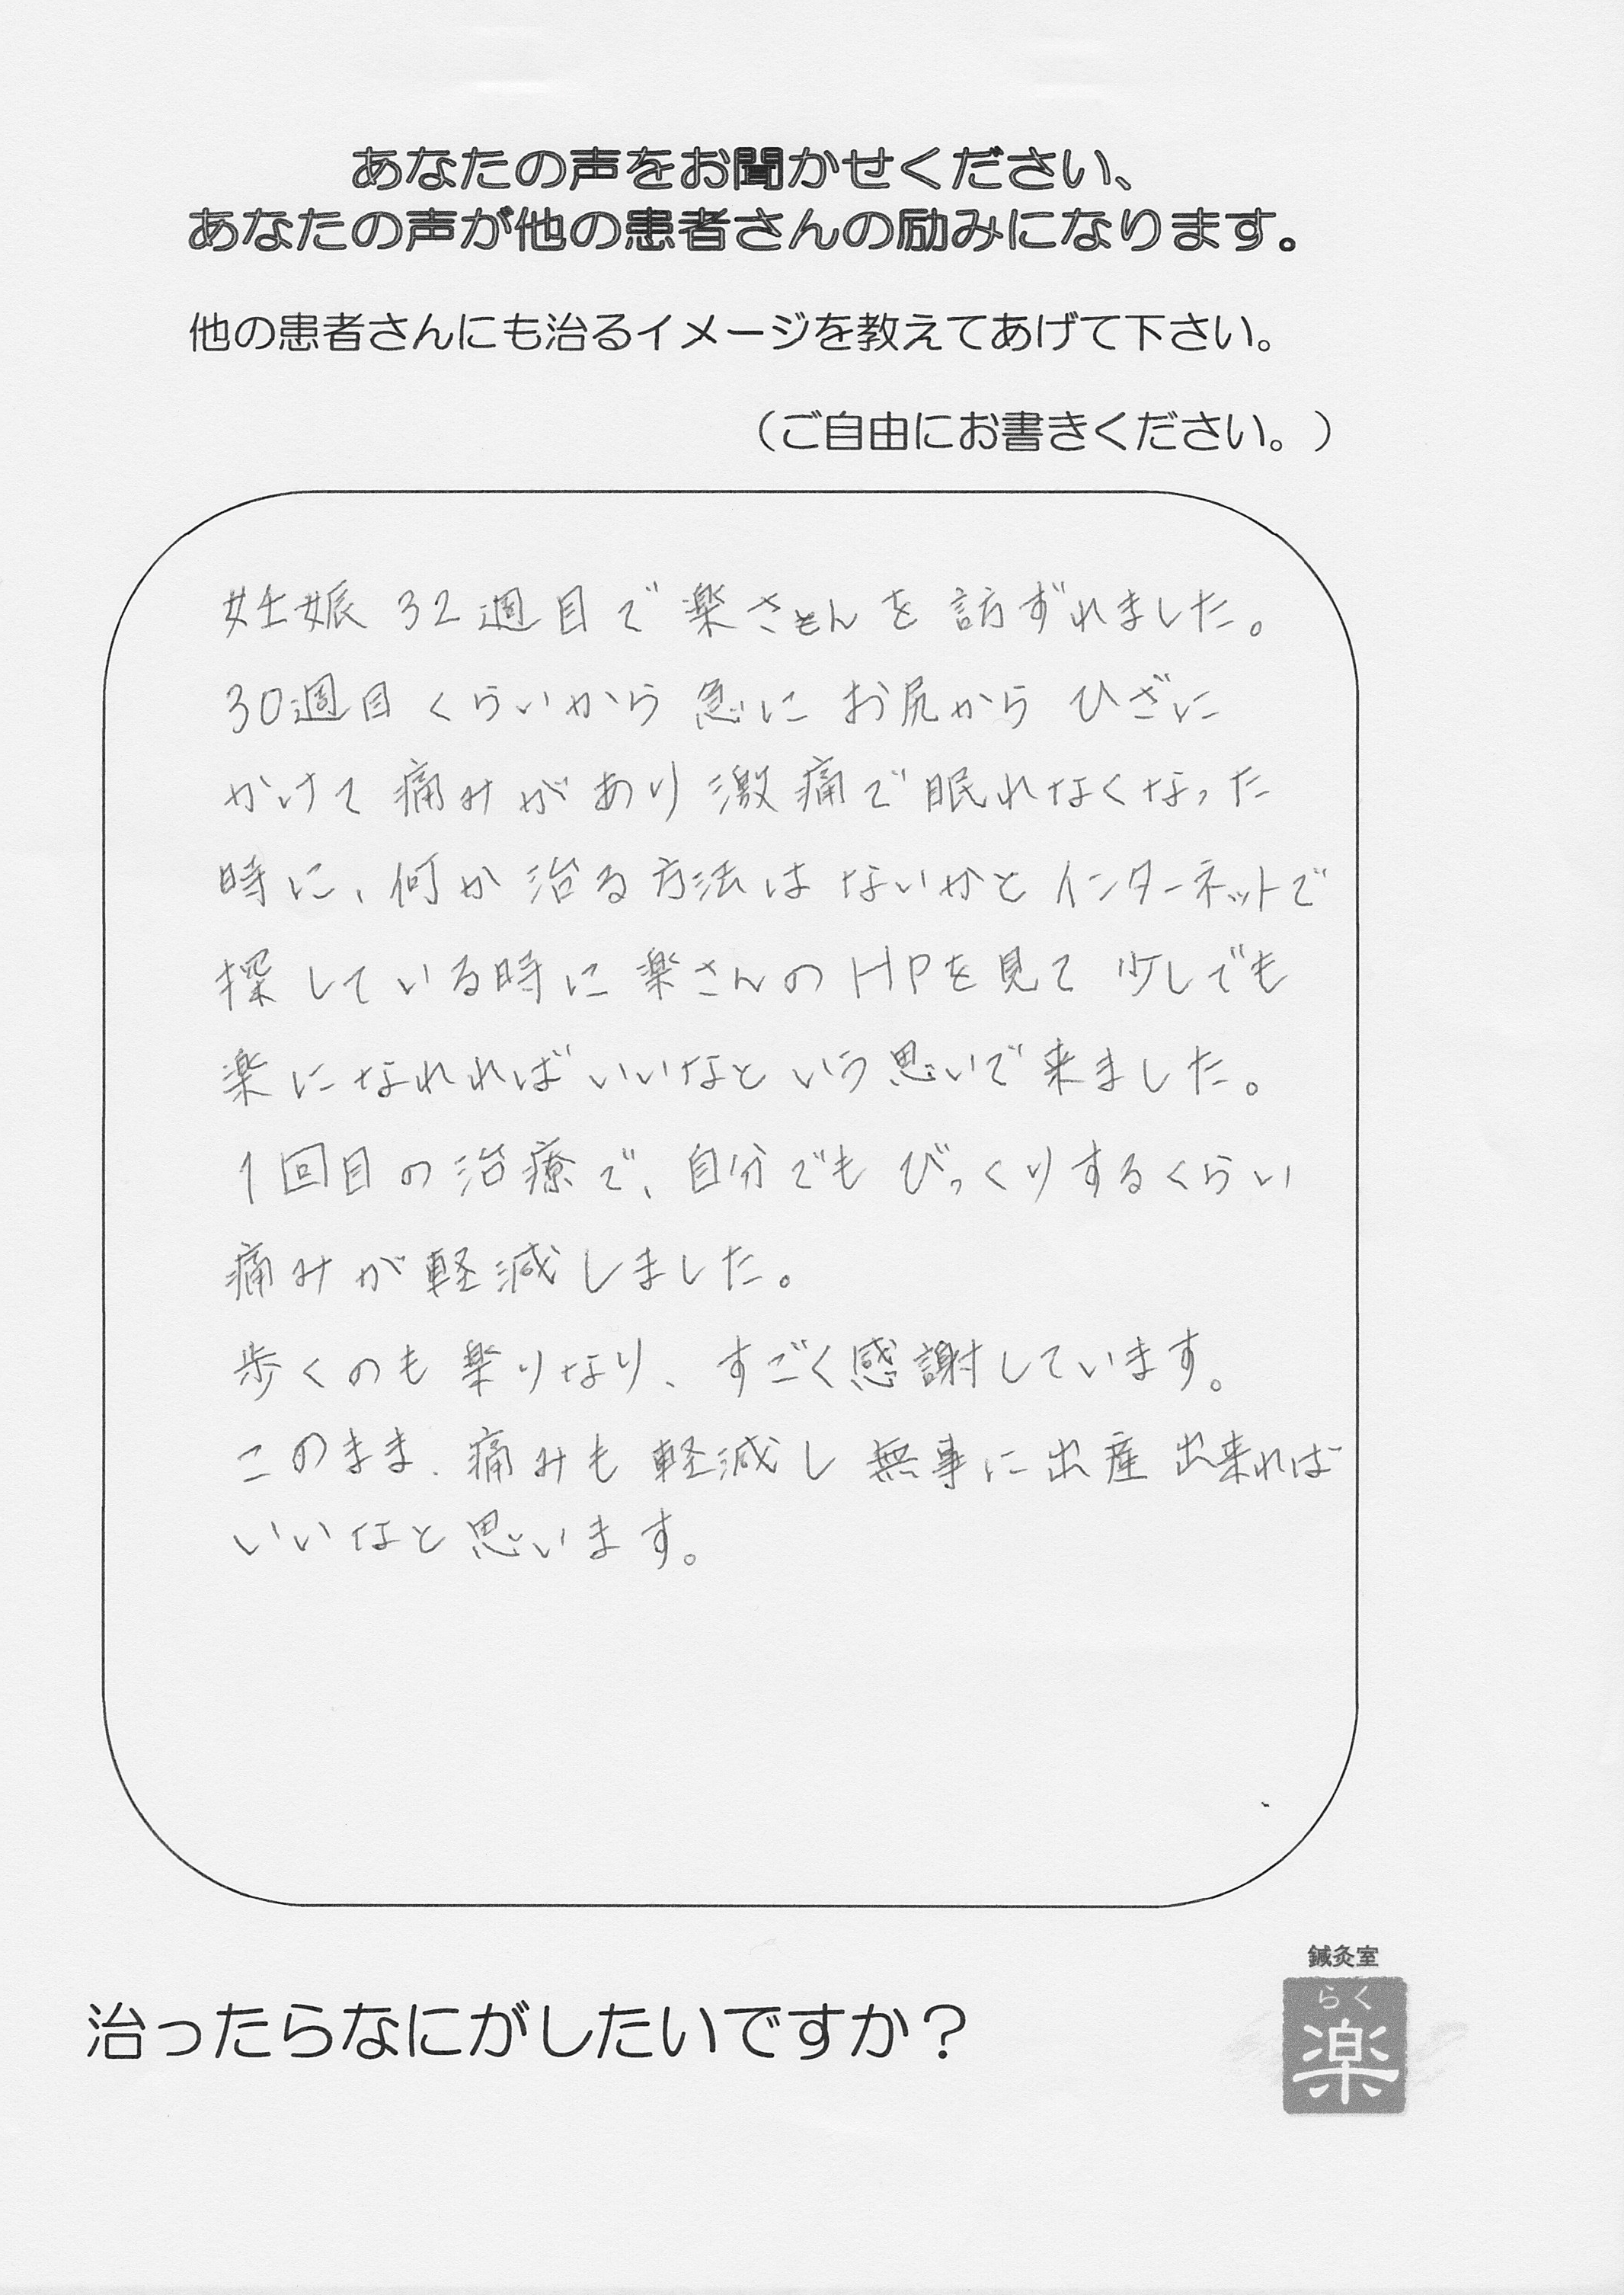 あなたの声をお聞かせください、
あなたの声が他の患者さんの励みになります。
他の患者さんにも治るイメージを教えてあげて下さい。
（ご自由にお書きください。）
妊娠32週目で楽さんを訪ずれました。
30週目くらいから急にお尻からひざに
かけて痛みがあり激痛で眠れなくなった
時に、何か治る方法はないかとインターネットで
探している時に楽さんのHPを見て少しでも
楽になれればいいなという思いで来ました。
1回目の治療で、自分でもびっくりするくらい
痛みが軽減しました。
歩くのも楽りなり、すごく感謝しています。
このまま、痛みも軽減し無事に出産出来れば
いいなと思います。
治ったらなにがしたいですか？
鍼灸室
らく
楽